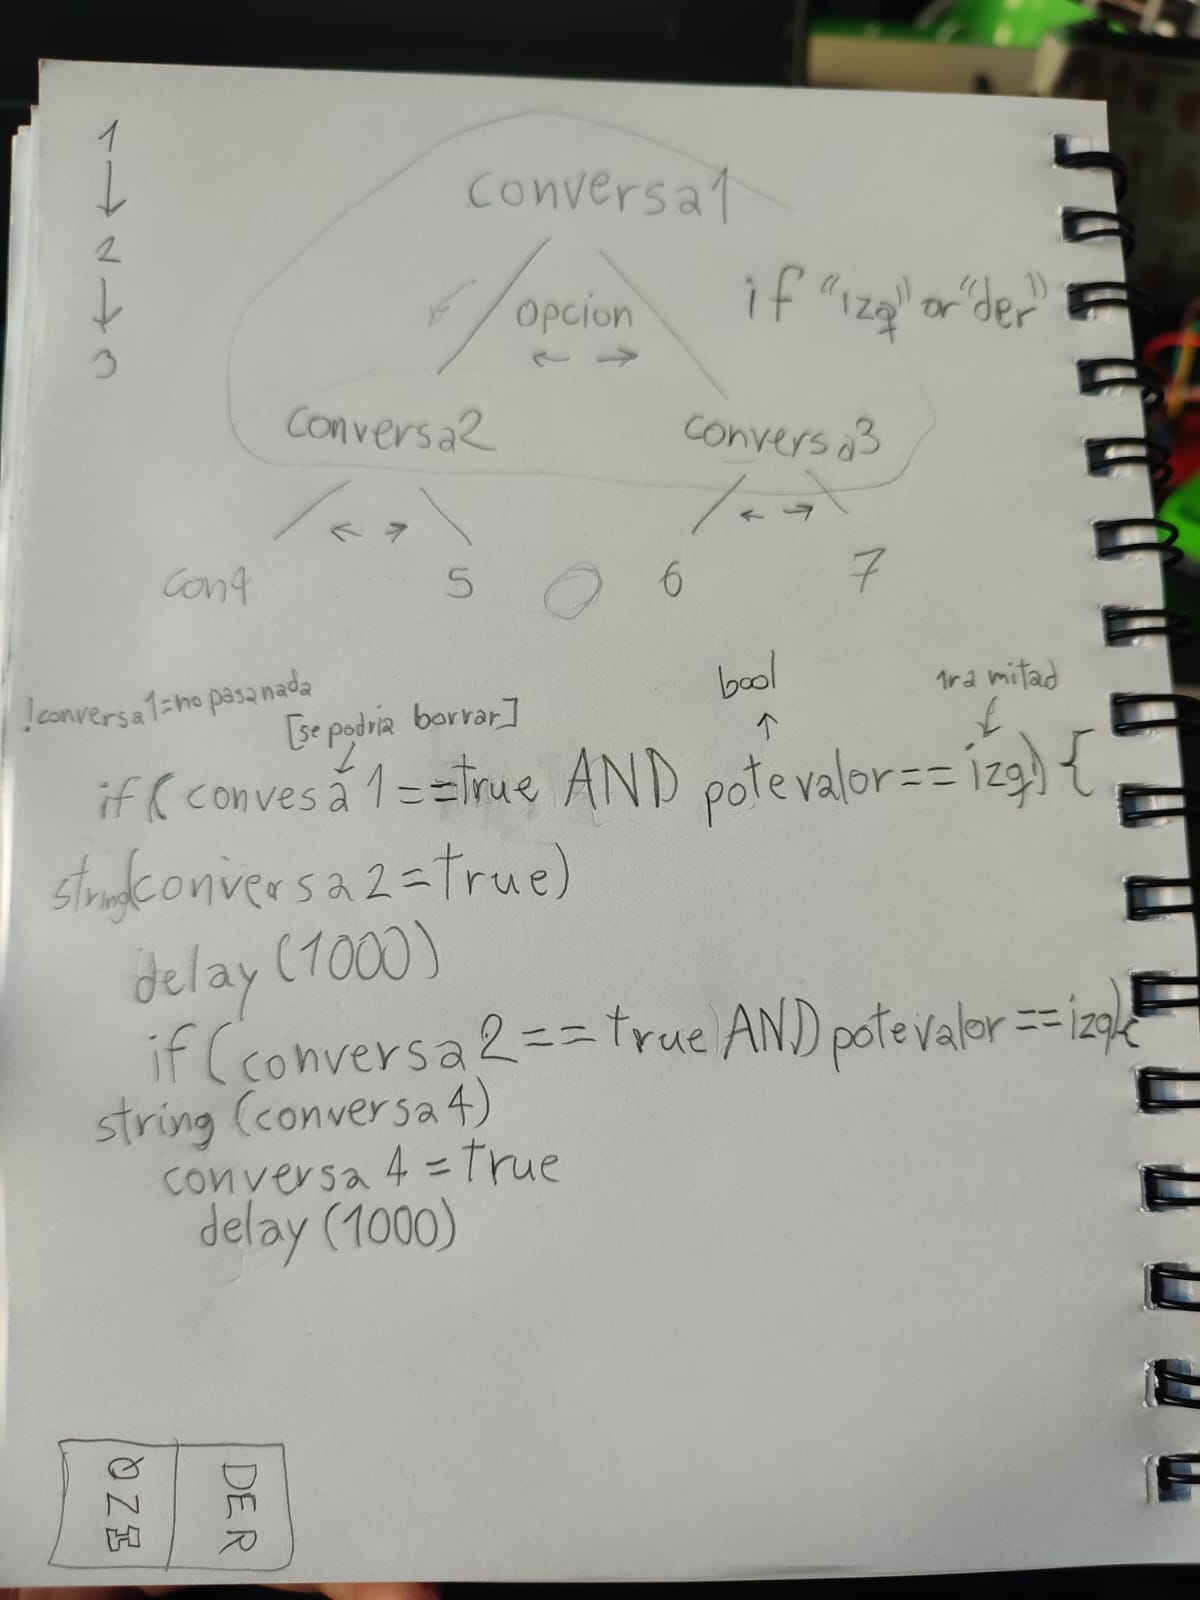 1
↓
2
↓
3
conversa1
opcion
← →
if "izq" or "der"
conversa2
conversa3
← →
← →
con4
5
6
7
!conversa1=no pasa nada
[se podria borrar]
bool
1ra mitad
if( convesa1==true AND potevalor==izq) {
string(conversa2=true)
delay(1000)
if(conversa2==true) AND potevalor==izq){
string (conversa4)
conversa4=true
delay(1000)
IZQ
DER